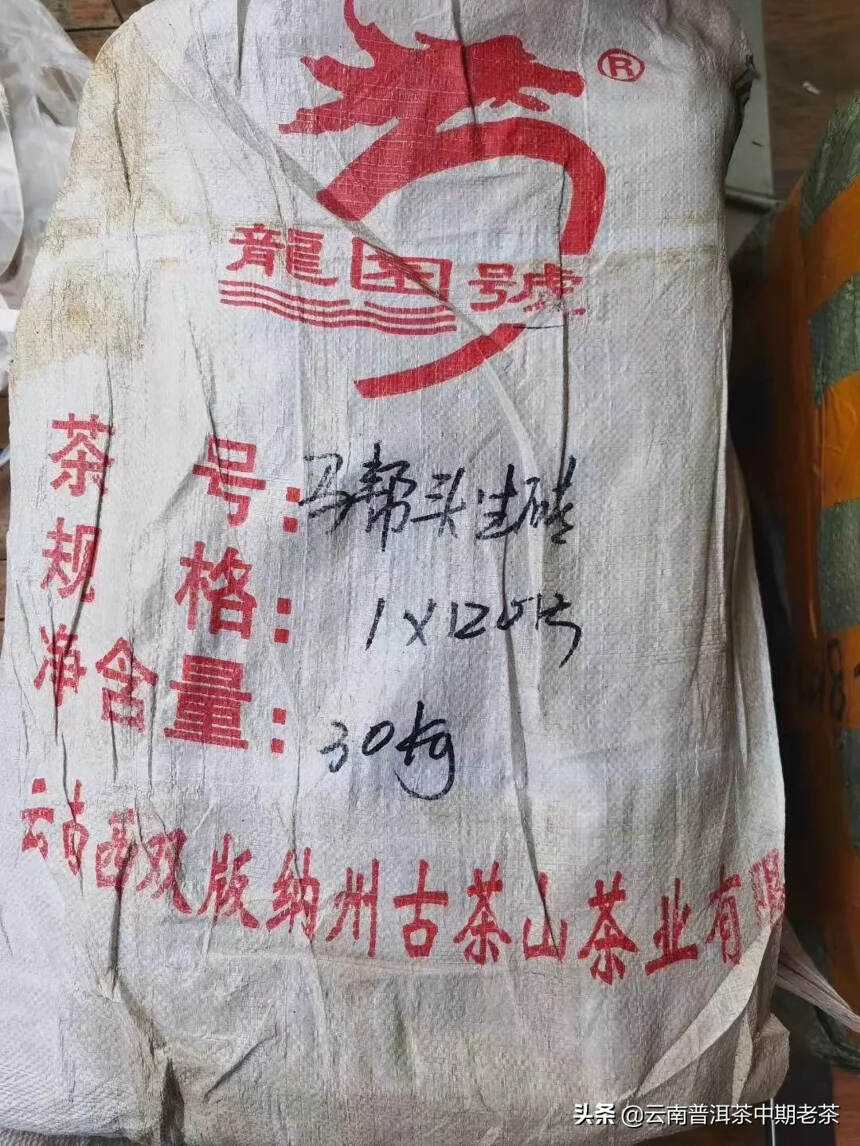 ®
龍園號
茶号：马帮头生砖
规格：1×120片
净含量：30kg
云南西双版纳州古茶山茶业有限
头条 @云南普洱茶中期老茶